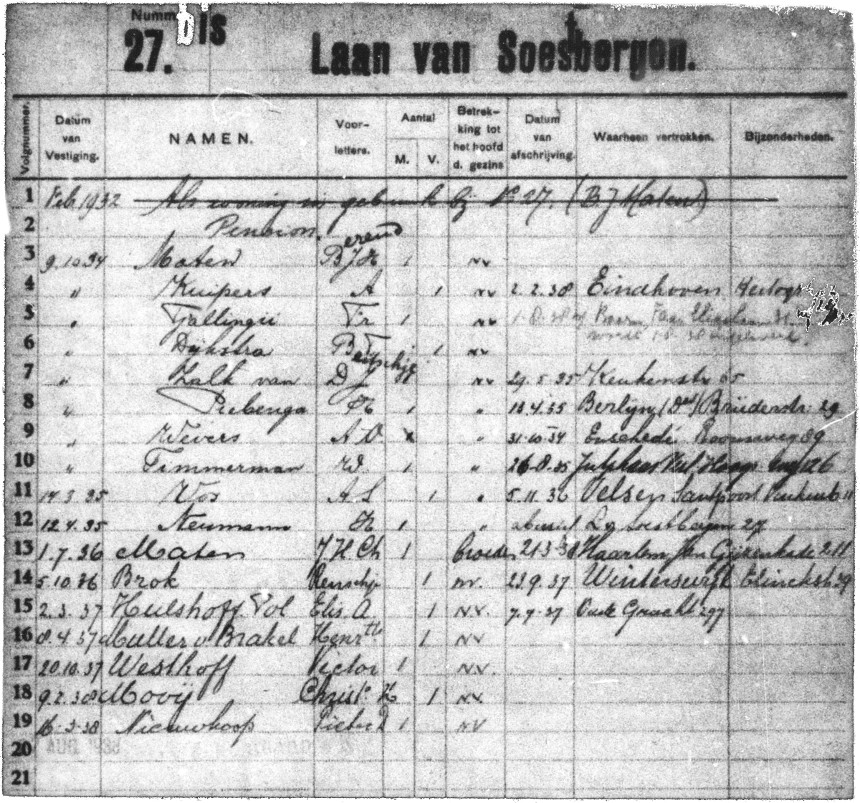 Numm
27. bis Laan van Soestbergen.
Volgnummer. Datum van Vestiging. NAMEN. Voorletters. Aantal M. V. Betrekking tot het hoofd d. gezins Datum van afschrijving. Waarheen vertrokken. Bijzonderheden.
1 Feb. 1932 Als woning in gebruik bij No 27. (B J Maten)
2 Pension.
Berend
3 9.10.34 Maten B J H 1 nv
4 " Kuipers A 1 nv 2.2.38 Eindhoven Hertog
5 " Tallingii Fr 1 nv 1.8.38 Baarn
6 " Dijkstra B T 1 nv
7 " Zalk van D J nv 29.5.35 Keukenstr 65
8 " Piebenga H 1 " 10.4.35 Berlijn (Dld) Brüderstr. 29
9 " Wevers A D x " 31-10-34 Enschedé
10 " Timmerman W 1 " 26.8.35
11 14.3.35 Vos A S 1 " 5.11.36 Velsen Santpoort
12 12.4.35 Neumann H 1 " L v Soestbergen 27
13 1.7.36 Maten J H Ch 1 broeder 21.3.38 Haarlem Jan Gijzenkade 211
14 5.10.36 Brok 1 nv. 23.9.37 Winterswijk
15 2.3.37 Hulshoff Pol Elis. A 1 N.V. 7.9.37 Oude Gracht 297
16 8.4.37 Muller v Brakel Henrtte 1 NV
17 20.10.37 Westhoff Victor 1 N.V.
18 9.2.38 Mooij Christ. H 1 NV
19 16-3-38 Nieuwkoop Pieter D 1 NV
20
21